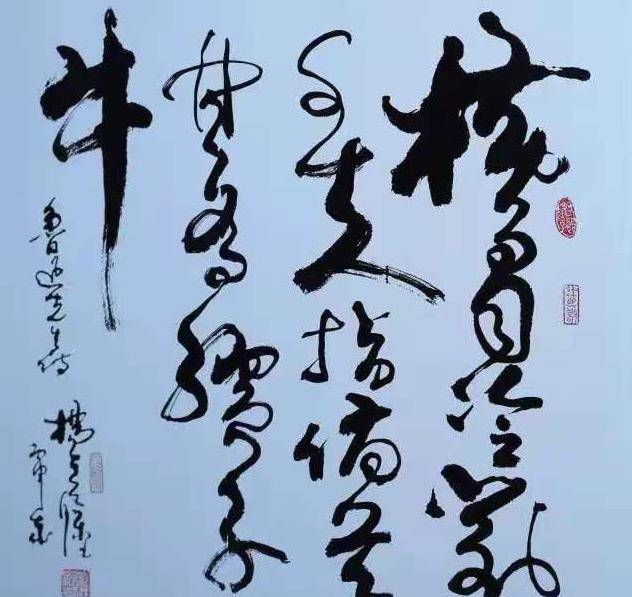 横眉冷對
千夫指俯首
甘為孺子
牛
魯迅先生诗